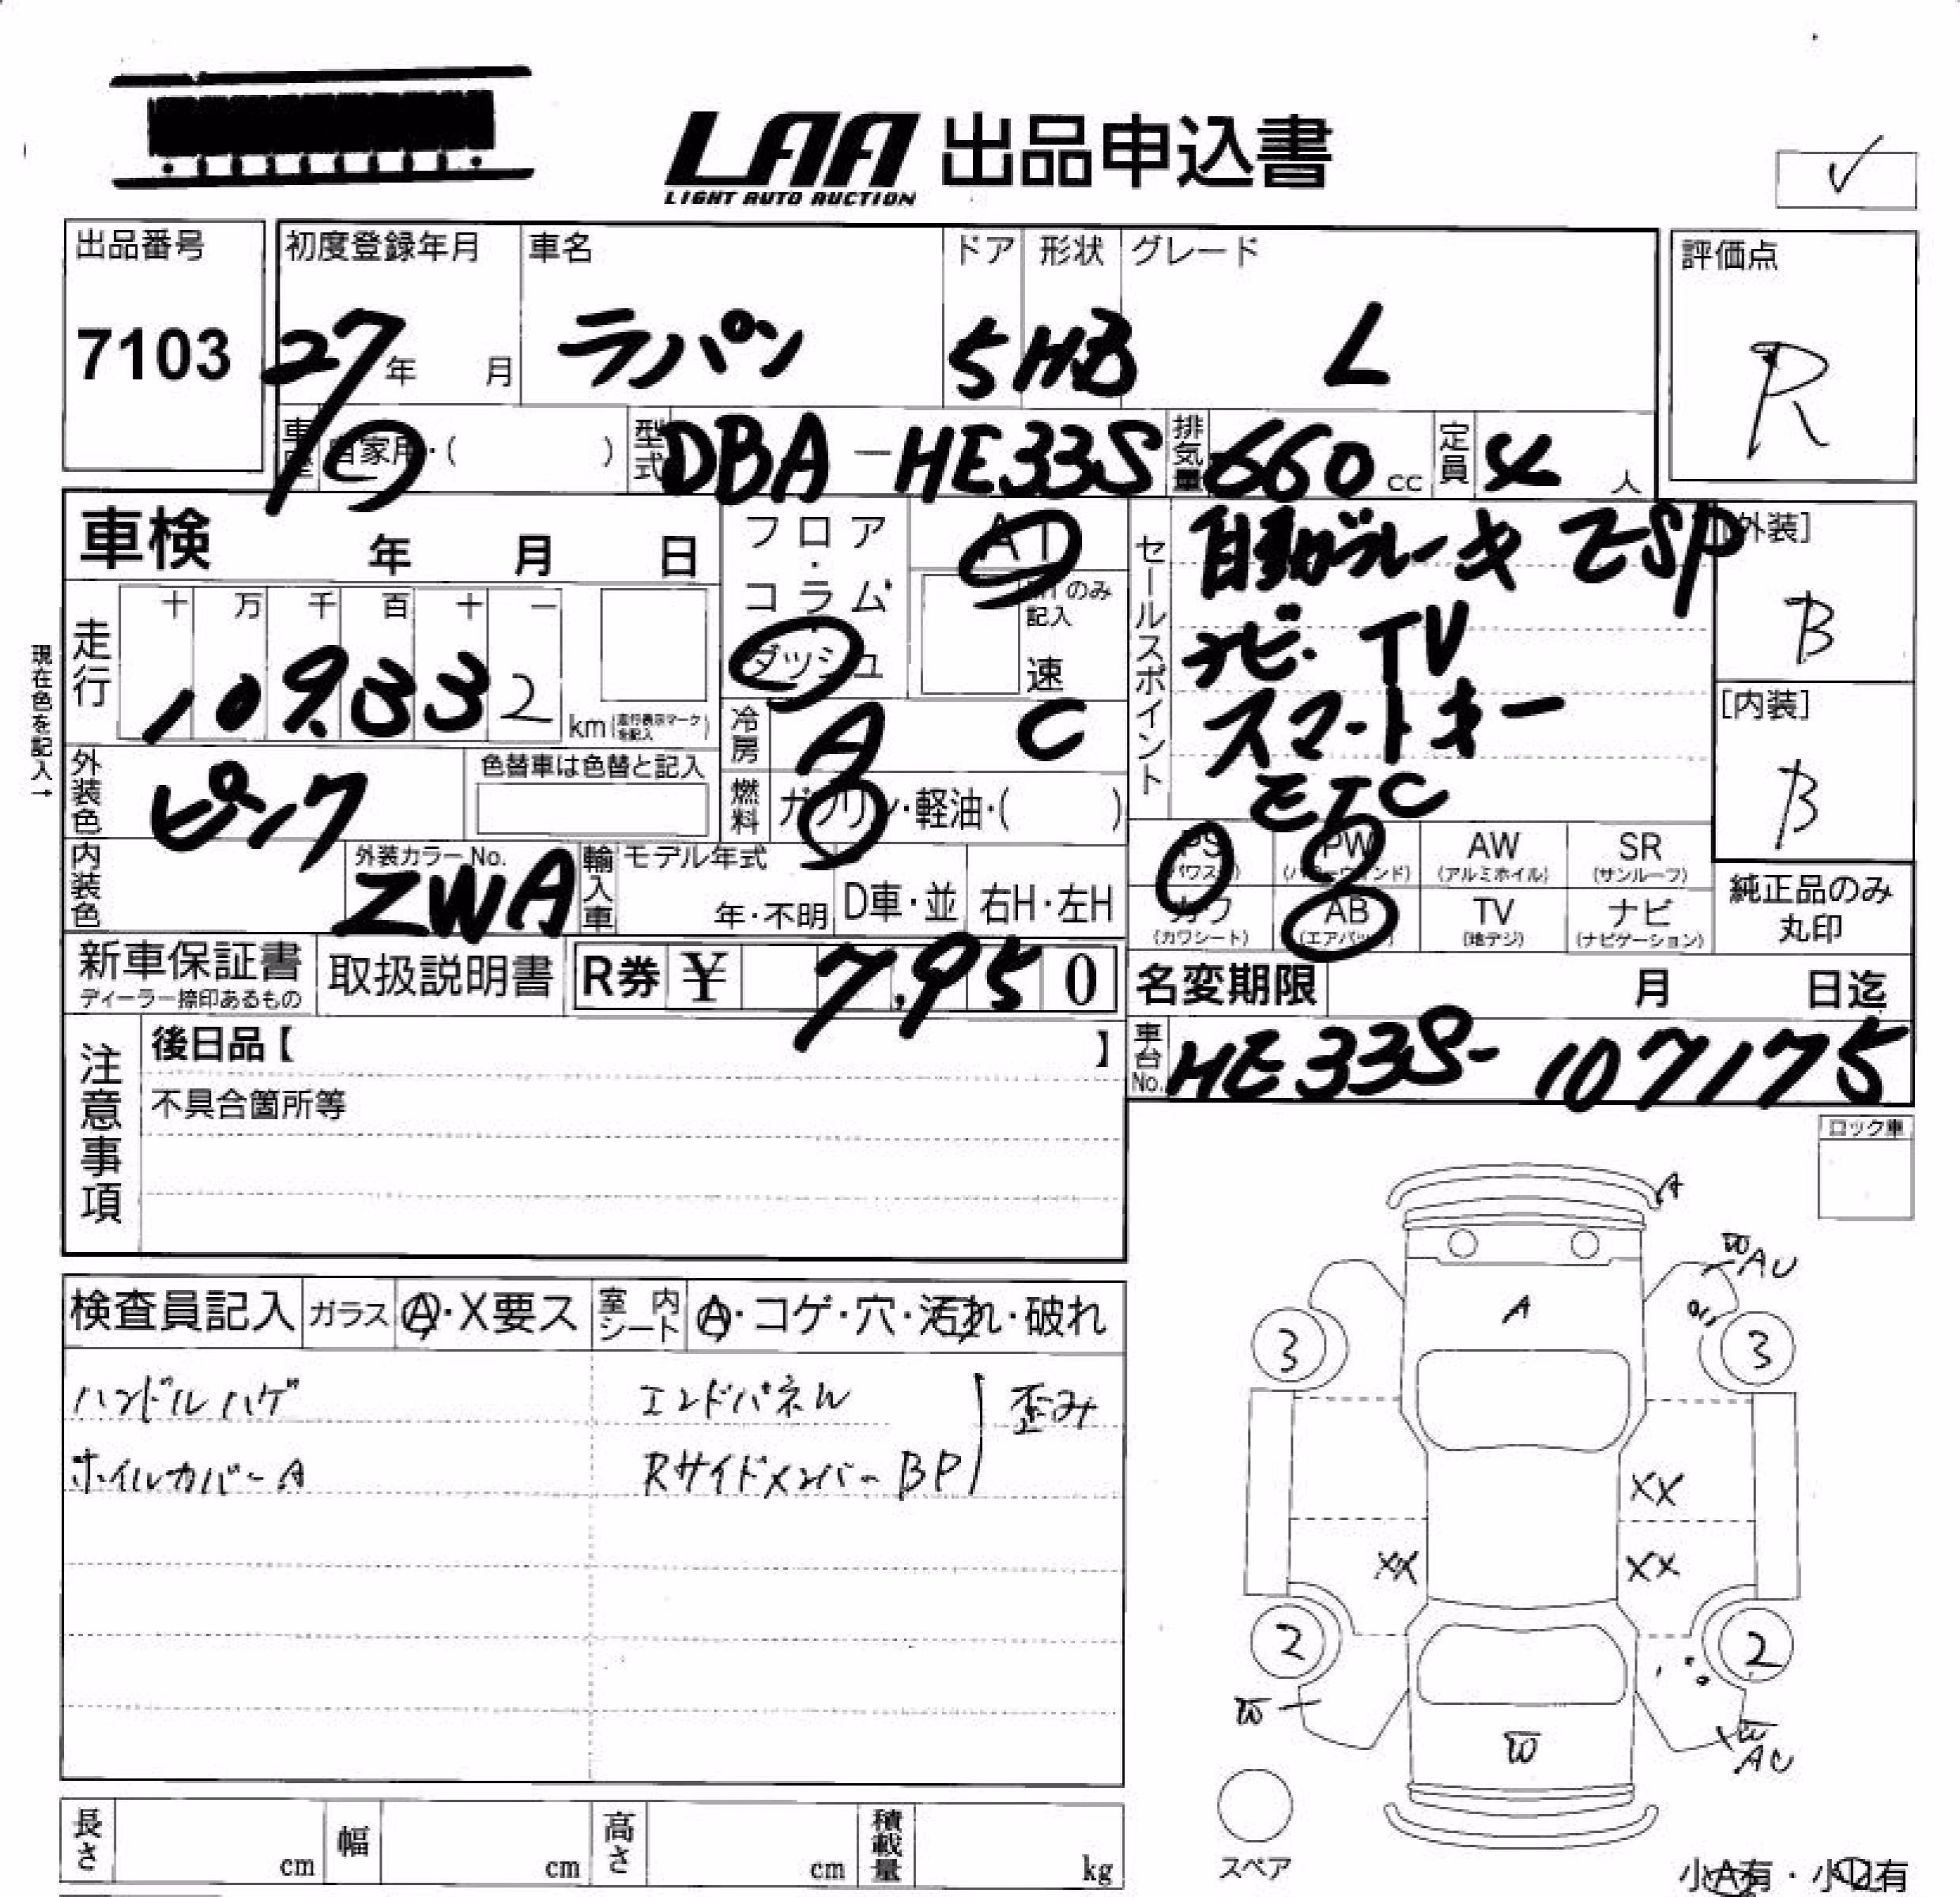 LAA 出品申込書
LIGHT AUTO AUCTION
✓
出品番号 初度登録年月 車名 ドア 形状 グレード 評価点
7103 27年 月 ラパン 5 HB L R
9
車歴 自家用・( ) 型式 DBA-HE33S 排気量 660 cc 定員 4 人
車検 年 月 日
フロア・コラム・ダッシュ
AT
MTのみ記入
速
セールスポイント
自動ブレーキ ESP
ナビ・TV
スマートキー
ETC
[外装]
B
[内装]
B
現在色を記入→
走行 十 万 千 百 十 一
109.332 km (走行表示マークを記入)
冷房 A C
外装色 ピンク 色替車は色替と記入
燃料 ガソリン・軽油・( )
内装色 外装カラーNo. ZWA
輸入車 モデル年式 年・不明 D車・並 右H・左H
PS (パワステ) PW (パワーウィンド) AW (アルミホイル) SR (サンルーフ)
カワ (カワシート) AB (エアバック) TV (地デジ) ナビ (ナビゲーション)
純正品のみ
丸印
新車保証書 取扱説明書 R券 ¥ 7,950
ディーラー捺印あるもの
名変期限 月 日迄
車台No. HE33S-107175
注意事項
後日品【 】
不具合箇所等
ロック車
検査員記入 ガラス A・X要ス 室内シート A・コゲ・穴・汚れ・破れ
ハンドルハゲ エンドパネル 歪み
ホイルカバーA RサイドメンバーBP
A
W AU
A
3 3
XX
XX XX
2 2
W
W
W
AU
スペア
長さ cm 幅 cm 高さ cm 積載量 kg
小A有・小U有